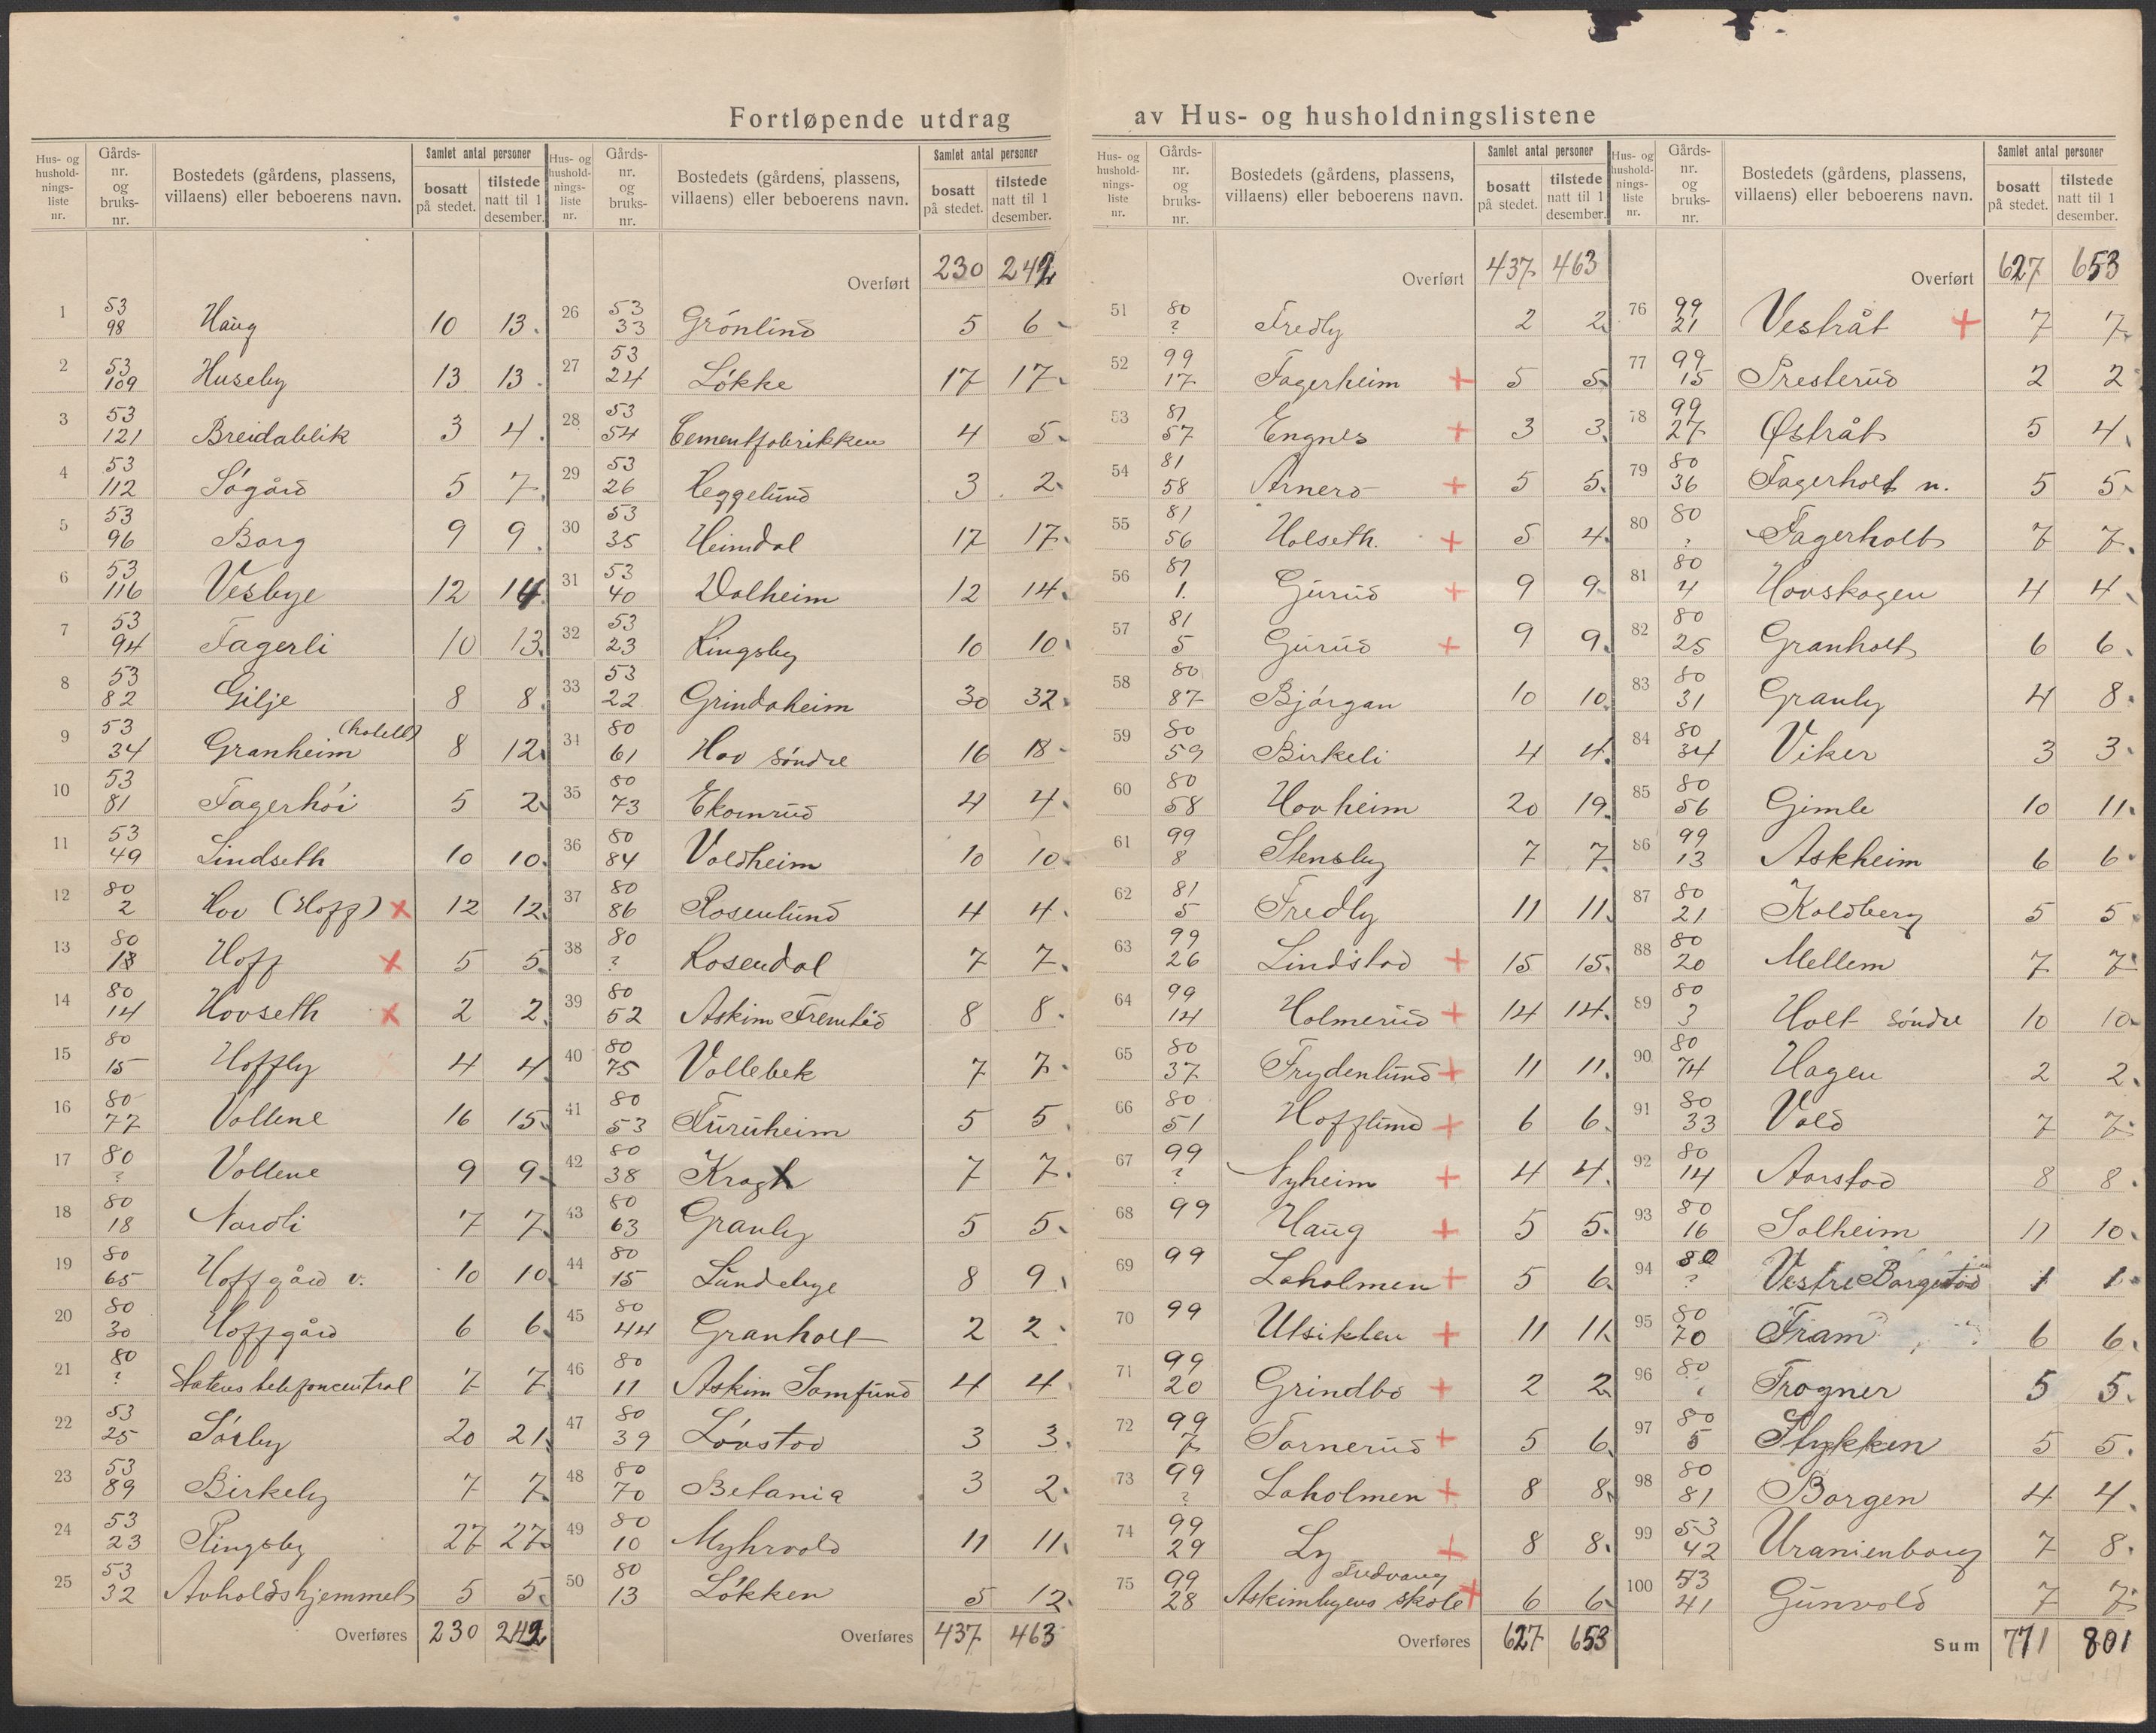 Fortløpende utdrag av Hus- og husholdningslistene
Hus- og husholdningsliste nr.
Gårds-nr. og bruks-nr.
Bostedets (gårdens, plassens, villaens) eller beboerens navn.
Samlet antal personer
bosatt på stedet.
tilstede natt til 1 desember.
1 53 98 Haug 10 13
2 53 109 Huseby 13 13
3 53 121 Breidablik 3 4
4 53 112 Søgård 5 7
5 53 96 Borg 9 9
6 53 116 Vesbye 12 14
7 53 94 Fagerli 10 13
8 53 82 Gilje 8 8
9 53 34 Granheim (hotell) 8 12
10 53 81 Fagerhøi 5 2
11 53 49 Lindseth 10 10
12 80 2 Hov (Hoff) × 12 12
13 80 18 Hoff × 5 5
14 80 14 Hovseth × 2 2
15 80 15 Hoffly 4 4
16 80 77 Vollene 16 15
17 80 ? Vollene 9 9
18 80 18 Nordli 7 7
19 80 65 Hoffgård v. 10 10
20 80 30 Hoffgård 6 6
21 80 ? Statens telefoncentral 7 7
22 53 25 Sørby 20 21
23 53 89 Birkely 7 7
24 53 23 Ringsby 27 27
25 53 32 Avholdshjemmet 5 5
Overføres 230 242
Hus- og husholdningsliste nr.
Gårds-nr. og bruks-nr.
Bostedets (gårdens, plassens, villaens) eller beboerens navn.
Samlet antal personer
bosatt på stedet.
tilstede natt til 1 desember.
Overført 230 242
26 53 33 Grönlund 5 6
27 53 24 Løkke 17 17
28 53 54 Cementfabrikken 4 5
29 53 26 Heggelund 3 2
30 53 35 Heimdal 17 17
31 53 40 Dalheim 12 14
32 53 23 Ringsby 10 10
33 53 22 Grindaheim 30 32
34 80 61 Hov søndre 16 18
35 80 73 Ekornrud 4 4
36 80 84 Voldheim 10 10
37 80 86 Rosenlund 4 4
38 80 ? Rosendal 7 7
39 80 52 Askim Fremtid 8 8
40 80 75 Vollebek 7 7
41 80 53 Furuheim 5 5
42 80 38 Kragh 7 7
43 80 63 Granly 5 5
44 80 15 Lundebye 8 9
45 80 44 Granholt 2 2
46 80 11 Askim Samfund 4 4
47 80 39 Løvstad 3 3
48 80 70 Betania 3 2
49 80 10 Myhrvold 11 11
50 80 13 Løkken 5 12
Overføres 437 463
Hus- og husholdningsliste nr.
Gårds-nr. og bruks-nr.
Bostedets (gårdens, plassens, villaens) eller beboerens navn.
Samlet antal personer
bosatt på stedet.
tilstede natt til 1 desember.
Overført 437 463
51 80 ? Fredly 2 2
52 99 17 Fagerheim + 5 5
53 81 57 Engnes + 3 3
54 81 58 Arnerö + 5 5
55 81 56 Holseth. + 5 4
56 81 1. Gurud + 9 9
57 81 5 Gurud + 9 9
58 80 87 Bjørgan 10 10
59 80 59 Birkeli 4 4
60 80 58 Hovheim 20 19
61 99 8 Stensby 7 7
62 81 5 Fredly 11 11
63 99 26 Lindstad + 15 15
64 99 14 Holmerud + 14 14
65 80 37 Frydenlund + 11 11
66 80 51 Hofflund + 6 6
67 99 ? Nyheim + 4 4
68 99 Haug + 5 5
69 99 Laholmen + 5 6
70 99 Utsikten + 11 11
71 99 20 Grindbo + 2 2
72 99 7 Tornerud + 5 6
73 99 ? Laholmen + 8 8
74 99 29 Ly + 8 8
75 99 28 Fredvang Askimbyens skole + 6 6
Overføres 627 653
Hus- og husholdningsliste nr.
Gårds-nr. og bruks-nr.
Bostedets (gårdens, plassens, villaens) eller beboerens navn.
Samlet antal personer
bosatt på stedet.
tilstede natt til 1 desember.
Overført 627 653
76 99 21 Vestråt + 7 7
77 99 15 Presterud 2 2
78 99 27 Østråt 5 4
79 80 36 Fagerholt n. 5 5
80 80 ? Fagerholt 7 7
81 80 4 Hovskogen 4 4
82 80 25 Granholt 6 6
83 80 31 Granly 4 8
84 80 34 Viker 3 3
85 80 56 Gimle 10 11
86 99 13 Askheim 6 6
87 80 21 Koldberg 5 5
88 80 20 Mellem 7 7
89 80 3 Holt søndre 10 10
90 80 74 Hagen 2 2
91 80 33 Vold 7 7
92 80 14 Aarstad 8 8
93 80 16 Solheim 11 10
94 80 ? Vestre 1 1
95 80 70 Fram 6 6
96 80 Frogner 5 5
97 80 5 Stykken 5 5
98 80 81 Borgen 4 4
99 53 42 Uranienborg 7 8
100 53 41 Gunvold 7 7
Sum 771 801